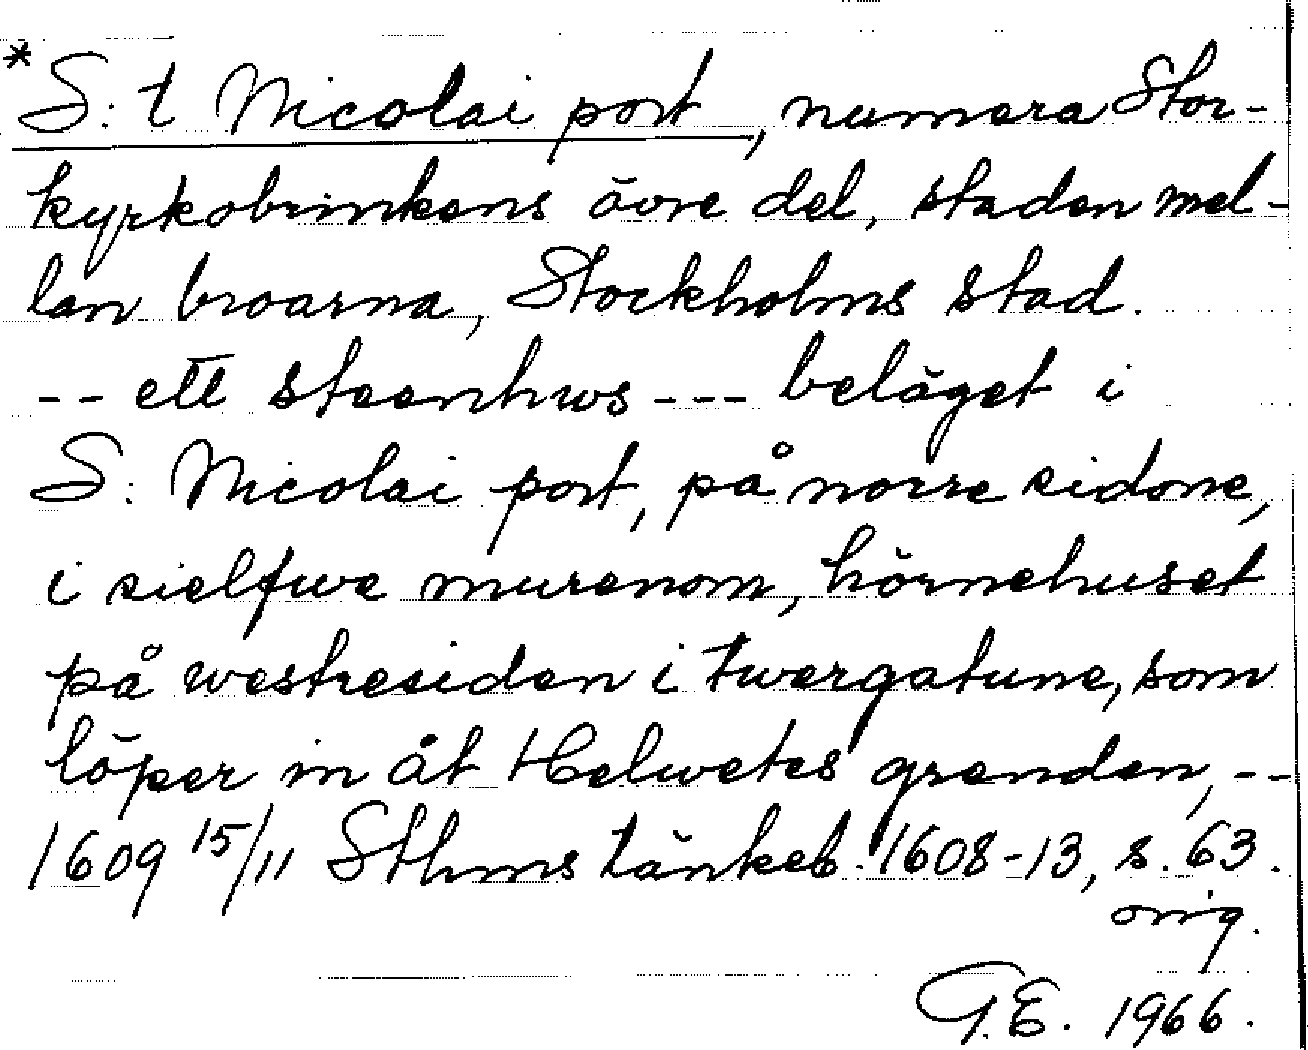 * S:t Nicolai port, numera Stor-
kyrkobrinkens övre del, staden mel-
lan broarna, Stockholms stad.
-- ett steenhws --- beläget i
S: Nicolai port, på norre sidone,
i sielfwe murenom, hörnehuset
på westresiden i twergatune, som
löper in åt Helwetes grenden, --
1609 15/11 Sthms tänkeb. 1608-13, s. 63.
orig.
G.E. 1966.